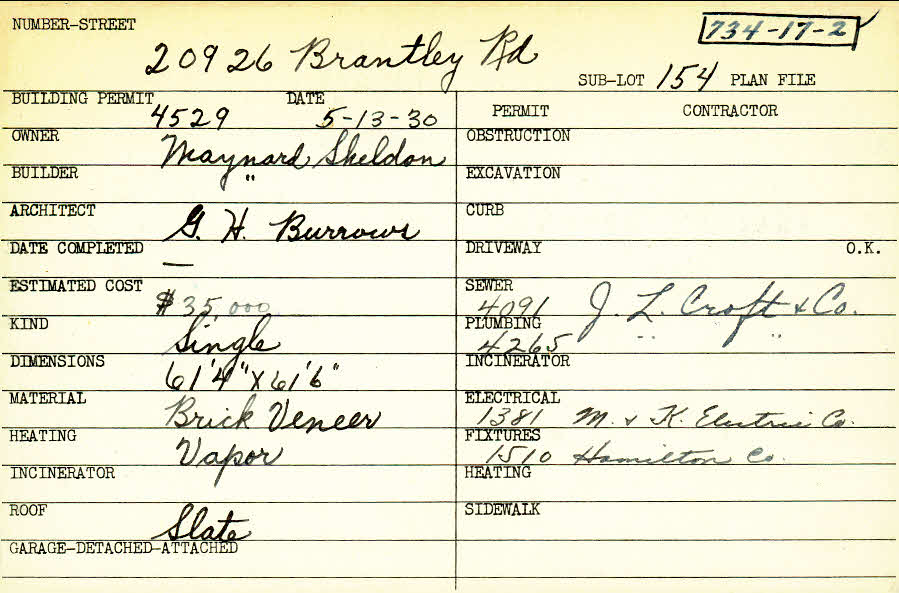 NUMBER-STREET
734-17-2
20926 Brantley Rd
SUB-LOT 154 PLAN FILE
BUILDING PERMIT 4529 DATE 5-13-30
OWNER Maynard Sheldon
BUILDER "
ARCHITECT G. H. Burrows
DATE COMPLETED —
ESTIMATED COST $35,000
KIND Single
DIMENSIONS 61'4" x 61'6"
MATERIAL Brick Veneer
HEATING Vapor
INCINERATOR
ROOF Slate
GARAGE-DETACHED-ATTACHED
PERMIT CONTRACTOR
OBSTRUCTION
EXCAVATION
CURB
DRIVEWAY O.K.
SEWER 4091 J. L. Croft & Co.
PLUMBING 4265 " "
INCINERATOR
ELECTRICAL 1381 M. & K. Electric Co.
FIXTURES 1510 Hamilton Co.
HEATING
SIDEWALK